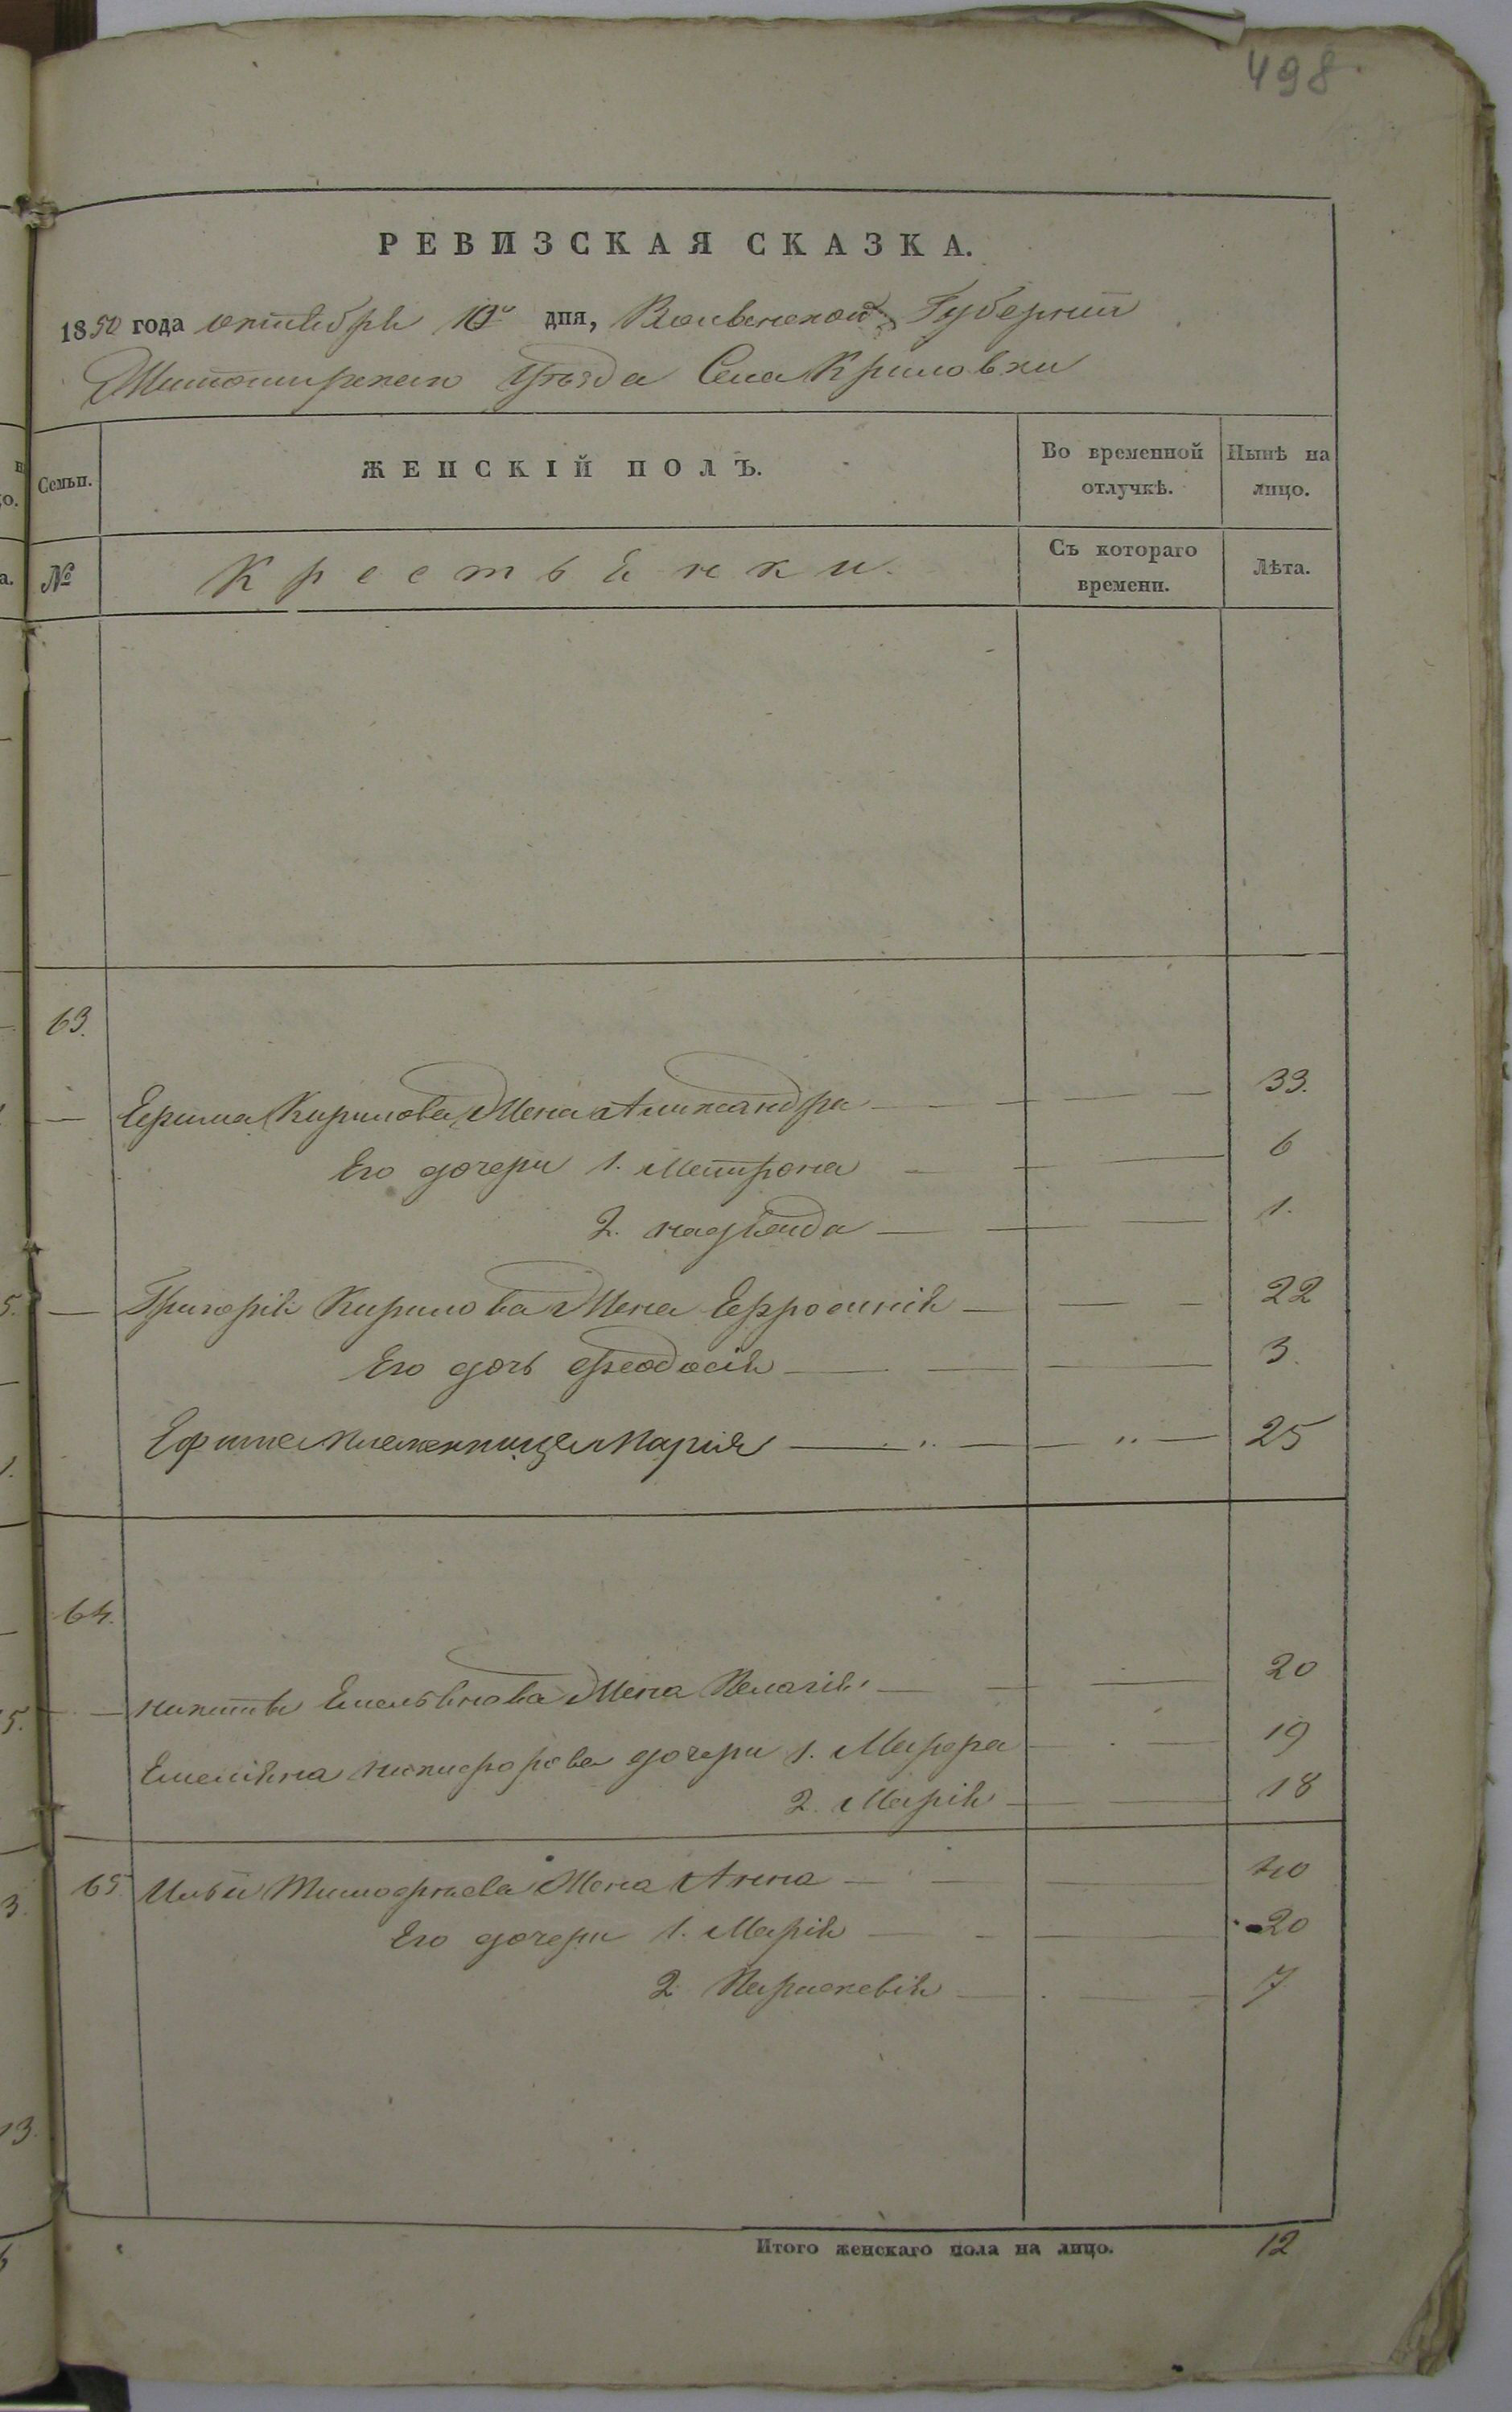 498
РЕВИЗСКАЯ СКАЗКА.
1850 года октября 10го дня, Волынской Губернии
Житомирскаго Уѣзда Села Криловки
Семьи.
ЖЕНСКІЙ ПОЛЪ.
Во временной отлучкѣ.
Нынѣ на лицо.
№
Крестьянки.
Съ котораго времени.
Лѣта.
63.
— Ефима Кирилова Жена Александра — — — 33.
Его дочери 1. Матрона — — 6
2. Надѣжда — — 1.
— Григорія Кирилова Жена Ефросинія — — — 22
Его дочь Феодосія — — 3.
Ефима племенница Марія — „ — — „ — 25
64.
— Никиты Емельянова Жена Пелагія — — — 20
Емеліяна Никифорова дочери 1. Марфа — — 19
2. Марія — — 18
65. Ильи Тимофѣева Жена Анна — — — 40
Его дочери 1. Марія — — — 20
2. Параскевія — — 7
Итого женскаго пола на лицо. 12